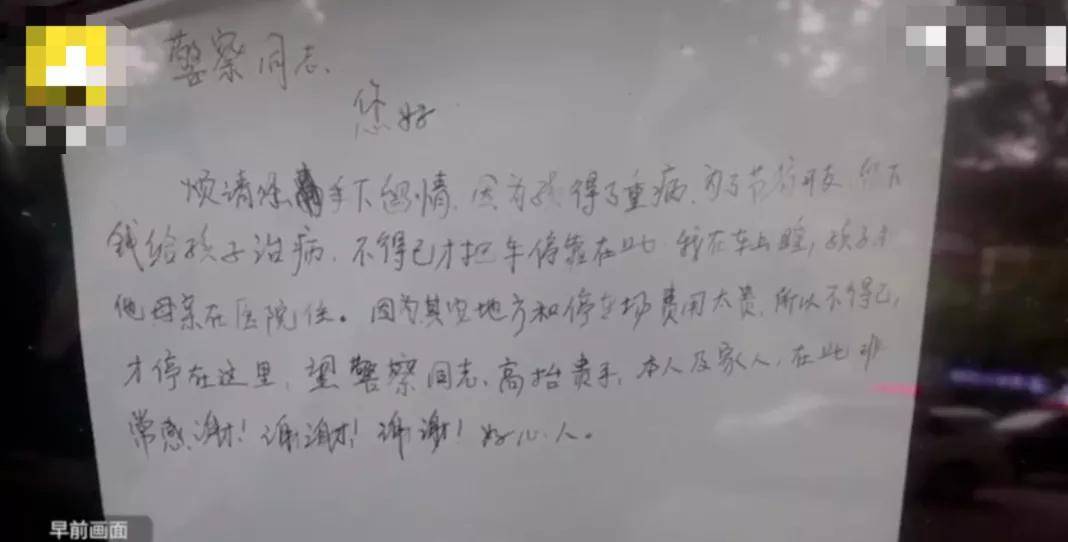 警察同志、
您好
烦请您手下留情、因为孩得了重病、为了节约开支、留下
钱给孩子治病、不得已才把车停靠在此、我在车上睡，孩子和
他母亲在医院住。因为其它地方和停车场费用太贵、所以不得已，
才停在这里、望警察同志、高抬贵手、本人及家人、在此非
常感谢！谢谢！谢谢！好心人。
早前画面